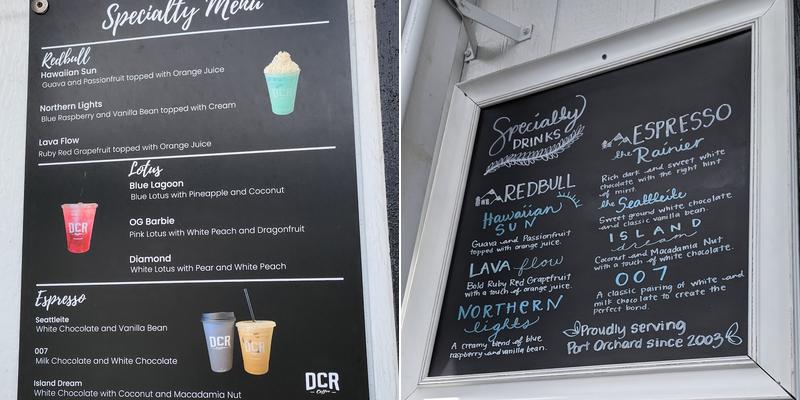 Specialty Menu
Redbull
Hawaiian Sun
Guava and Passionfruit topped with Orange Juice
Northern Lights
Blue Raspberry and Vanilla Bean topped with Cream
Lava Flow
Ruby Red Grapefruit topped with Orange Juice
Lotus
Blue Lagoon
Blue Lotus with Pineapple and Coconut
OG Barbie
Pink Lotus with White Peach and Dragonfruit
Diamond
White Lotus with Pear and White Peach
Espresso
Seattleite
White Chocolate and Vanilla Bean
007
Milk Chocolate and White Chocolate
Island Dream
White Chocolate with Coconut and Macadamia Nut
DCR
DCR
DCR
DCR
DCR
Coffee
Specialty
DRINKS
REDBULL
Hawaiian
SUN
Guava and Passionfruit
topped with orange juice.
LAVA flow
Bold Ruby Red Grapefruit
with a touch of orange juice.
NORTHERN
lights
A creamy blend of blue
raspberry and vanilla bean.
ESPRESSO
the Rainier
Rich dark and sweet white
chocolate with the right hint
of mint.
the Seattleite
Sweet ground white chocolate
and classic vanilla bean.
ISLAND
dream
Coconut and Macadamia Nut
with a touch of white chocolate.
007
A classic pairing of white and
milk chocolate to create the
perfect bond.
Proudly serving
Port Orchard since 2003